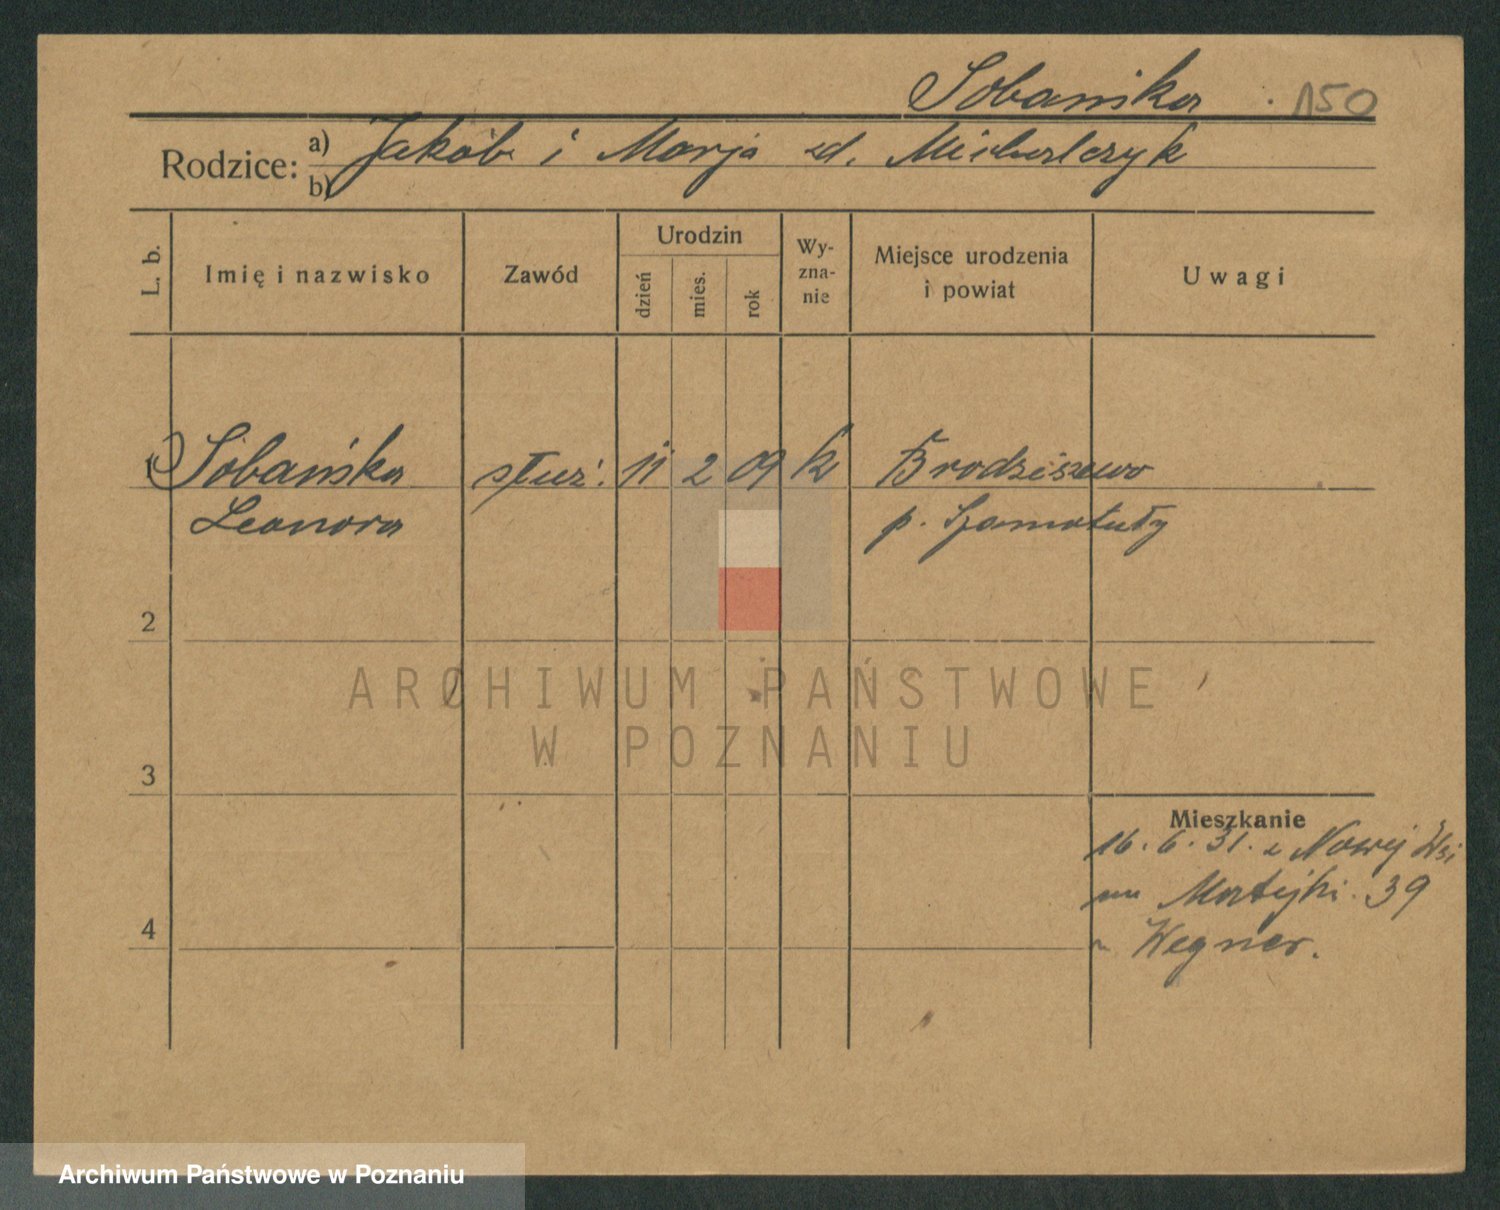 Sobańska 150
Rodzice:
a) Jakób i Marja zd. Michalczyk
b)
L. b.
Imię i nazwisko
Zawód
Urodzin
dzień
mies.
rok
Wy-
zna-
nie
Miejsce urodzenia
i powiat
Uwagi
1 Sobańska służ. 11 2 09 k Brodziszewo
Leonora p. Szamotuły
2
3
4
Mieszkanie
16. 6. 31. z Nowej Wsi
na Matejki 39
Wegner.
ARCHIWUM PAŃSTWOWE
W POZNANIU
Archiwum Państwowe w Poznaniu